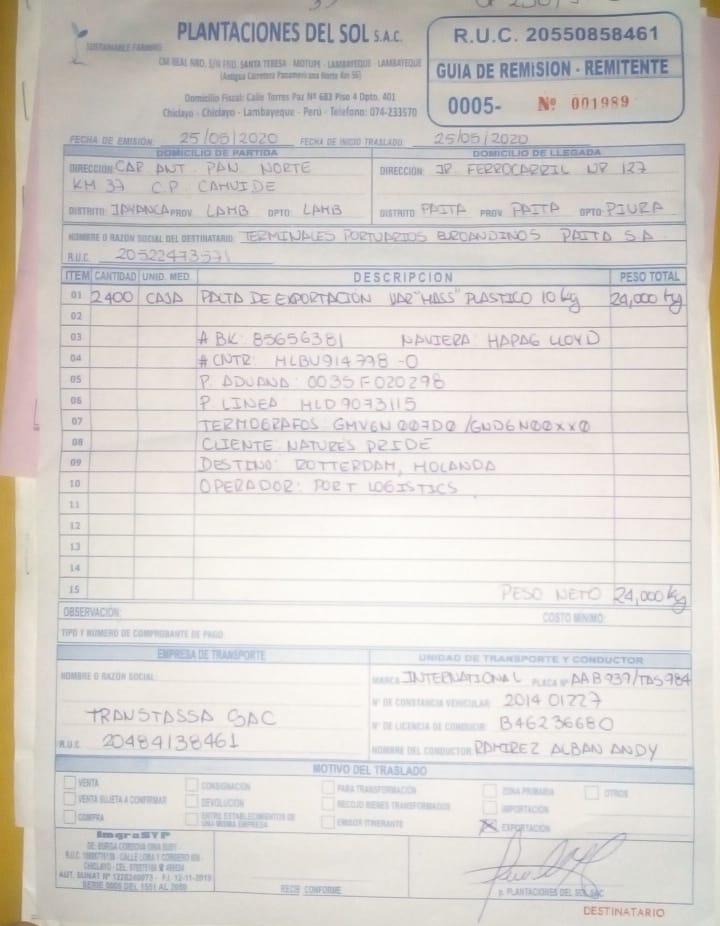 SUSTAINABLE FARMING
PLANTACIONES DEL SOL S.A.C.
CM REAL NRO. S/N FND. SANTA TERESA - MOTUPE - LAMBAYEQUE - LAMBAYEQUE
(Antigua Carretera Panamericana Norte Km 56)
Domicilio Fiscal: Calle Torres Paz Nº 683 Piso 4 Dpto. 401
Chiclayo - Chiclayo - Lambayeque - Perú - Telefono: 074-233570
R.U.C. 20550858461
GUIA DE REMISION - REMITENTE
0005- Nº 001989
FECHA DE EMISIÓN: 25/05/2020 FECHA DE INICIO TRASLADO: 25/05/2020
DOMICILIO DE PARTIDA
DIRECCIÓN: CAR ANT PAN NORTE
KM 37 C.P. CAMUIDE
DISTRITO: JAYANCA PROV. LAMB DPTO: LAMB
DOMICILIO DE LLEGADA
DIRECCIÓN: JR FERROCARRIL NR 127
DISTRITO PAITA PROV. PAITA DPTO: PIURA
NOMBRE O RAZON SOCIAL DEL DESTINATARIO: TERMINALES PORTUARIOS EUROANDINOS PAITA S.A
R.U.C. 20522473571
ITEM CANTIDAD UNID. MED. DESCRIPCION PESO TOTAL
01 2400 CAJA PALTA DE EXPORTACIÓN VAR "HASS" PLASTICO 10 kg 24,000 kg
02
03 # BK: 85656381 NAVIERA: HAPAG LLOYD
04 # CNTR: HLBU914778-0
05 P. ADUANA: 0035F020298
06 P. LINEA: HLD9073115
07 TERMOGRAFOS: GMV6N007D0 /GND6N00XX0
08 CLIENTE: NATURES PRIDE
09 DESTINO: ROTTERDAM, HOLANDA
10 OPERADOR: PORT LOGISTICS
11
12
13
14
15 PESO NETO 24,000 kg
OBSERVACIÓN: COSTO MÍNIMO:
TIPO Y NÚMERO DE COMPROBANTE DE PAGO:
EMPRESA DE TRANSPORTE
NOMBRE O RAZÓN SOCIAL:
TRANSTASSA SAC
R.U.C. 20484138461
UNIDAD DE TRANSPORTE Y CONDUCTOR
MARCA INTERNATIONAL PLACA Nº AAB939/TAS984
Nº DE CONSTANCIA VEHICULAR: 201401227
Nº DE LICENCIA DE CONDUCIR: B46236680
NOMBRE DEL CONDUCTOR: RAMIREZ ALBAN ANDY
MOTIVO DEL TRASLADO
VENTA
VENTA SUJETA A CONFIRMAR
COMPRA
CONSIGNACIÓN
DEVOLUCIÓN
ENTRE ESTABLECIMIENTOS DE UNA MISMA EMPRESA
PARA TRANSFORMACIÓN
RECOJO BIENES TRANSFORMADOS
EMISOR ITINERANTE
ZONA PRIMARIA
IMPORTACIÓN
EXPORTACIÓN
OTROS
ImgraSYP
DE: BURGA CORDOVA GINA SUSY
CHICLAYO - CEL.
AUT. SUNAT Nº - F.I. 12-11-2019
SERIE 0005 DEL 1551 AL 2050
RECIBI CONFORME
p. PLANTACIONES DEL SOL SAC
DESTINATARIO